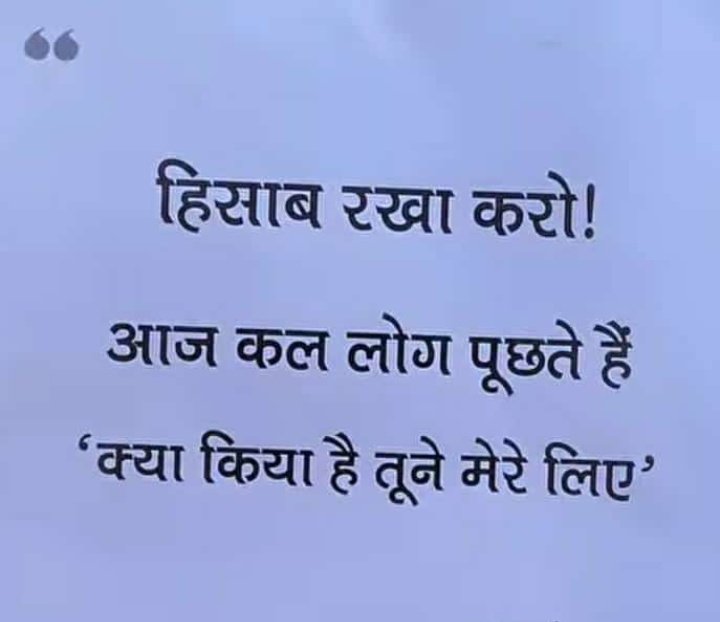 “
हिसाब रखा करो!
आज कल लोग पूछते हैं
‘क्या किया है तूने मेरे लिए’